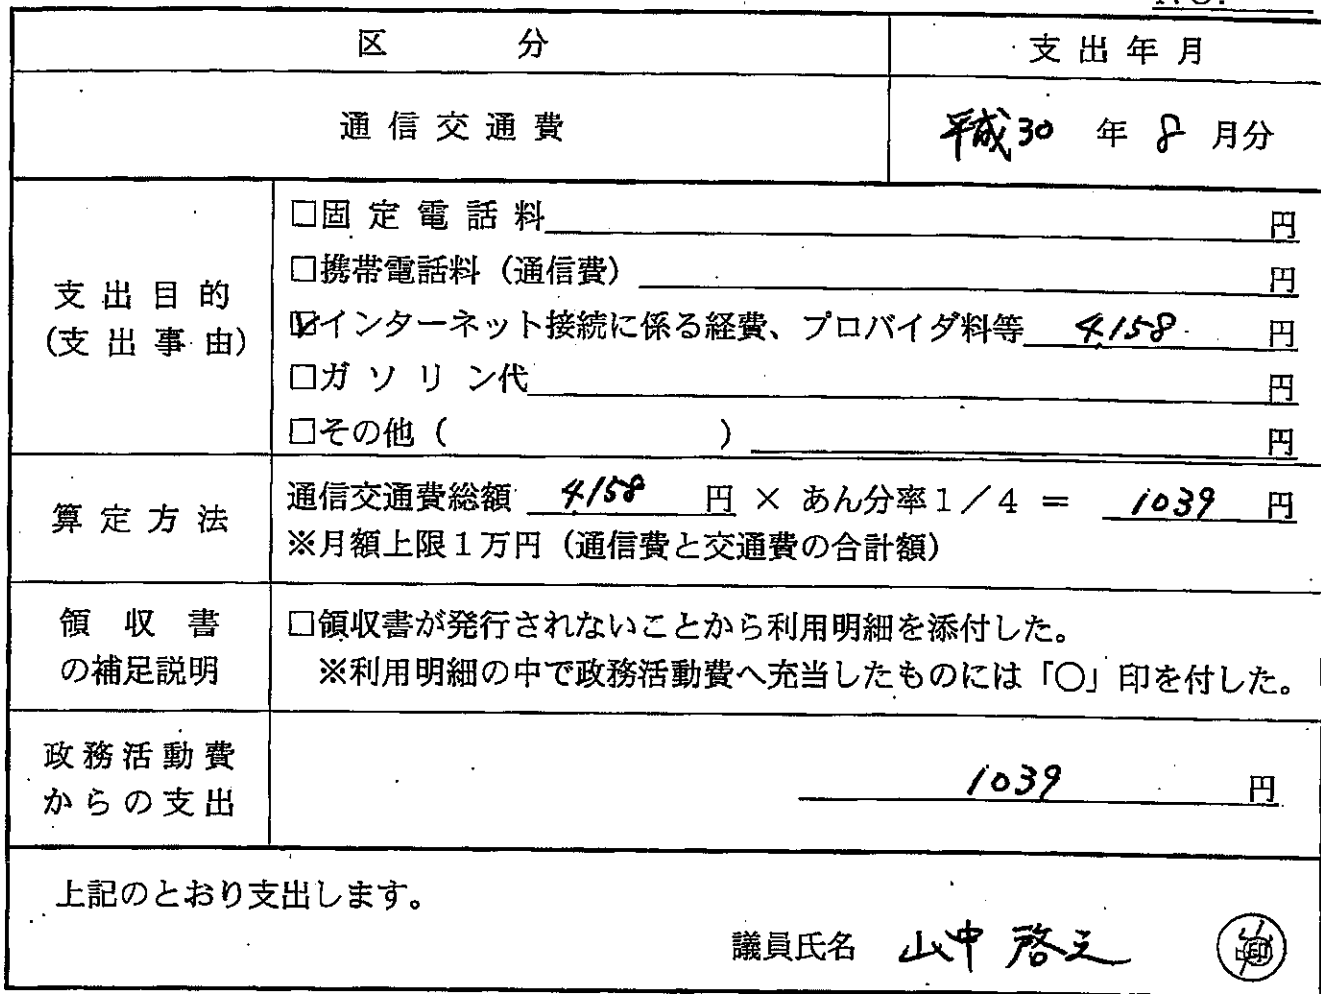 No.
区 分 支出年月
通信交通費 平成30 年 8 月分
支出目的
(支出事由)
□固定電話料 円
□携帯電話料(通信費) 円
☑インターネット接続に係る経費、プロバイダ料等 4,158 円
□ガソリン代 円
□その他( ) 円
算定方法
通信交通費総額 4,158 円 × あん分率1/4 = 1039 円
※月額上限1万円(通信費と交通費の合計額)
領収書
の補足説明
□領収書が発行されないことから利用明細を添付した。
※利用明細の中で政務活動費へ充当したものには「○」印を付した。
政務活動費
からの支出
1039 円
上記のとおり支出します。
議員氏名 山中啓之 印